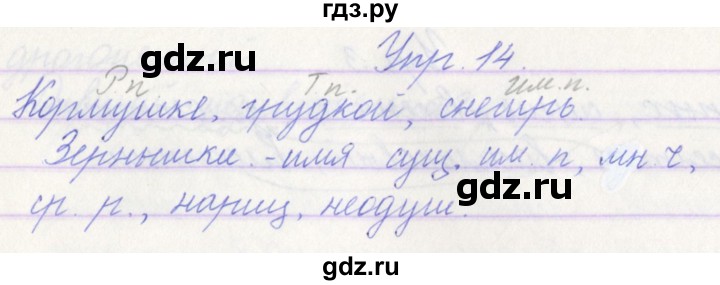 гдз.ру
gdz.ru
gdz.ru
Упр. 14.
Р п. Т п. им. п.
Кормушке, грудкой, снегирь.
gdz.ru
Зернышки. - имя сущ, им. п, мн ч,
gdz.ru
ср. р., нариц, неодуш.
gdz.ru
gdz.ru